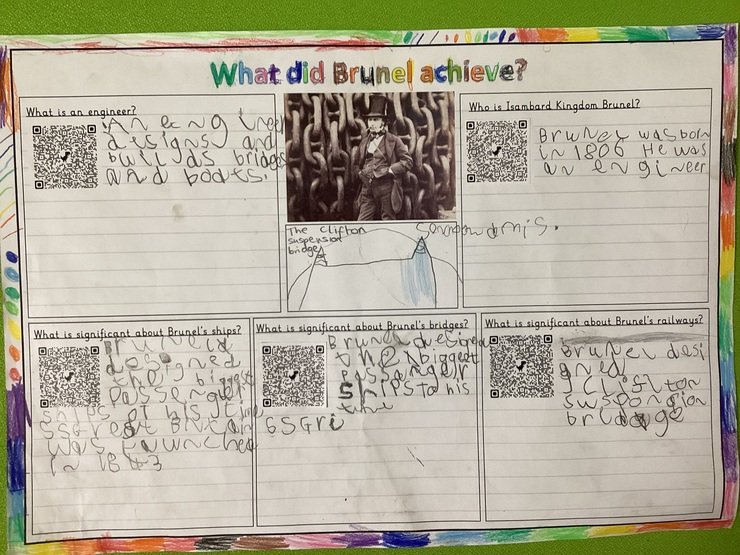 What did Brunel achieve?
What is an engineer?
An engineer
designs and
builds bridges
and boats.
The Clifton
suspension
bridge
Who is Isambard Kingdom Brunel?
Brunel was born
in 1806 He was
an engineer
What is significant about Brunel's ships?
designed
the biggest
passenger
ships of his time
SS Great Britain
was launched
in 1843
What is significant about Brunel's bridges?
Brunel
the biggest
passenger
ships to his
SSGri
What is significant about Brunel's railways?
Brunel desi
gned
Clifton
suspongion